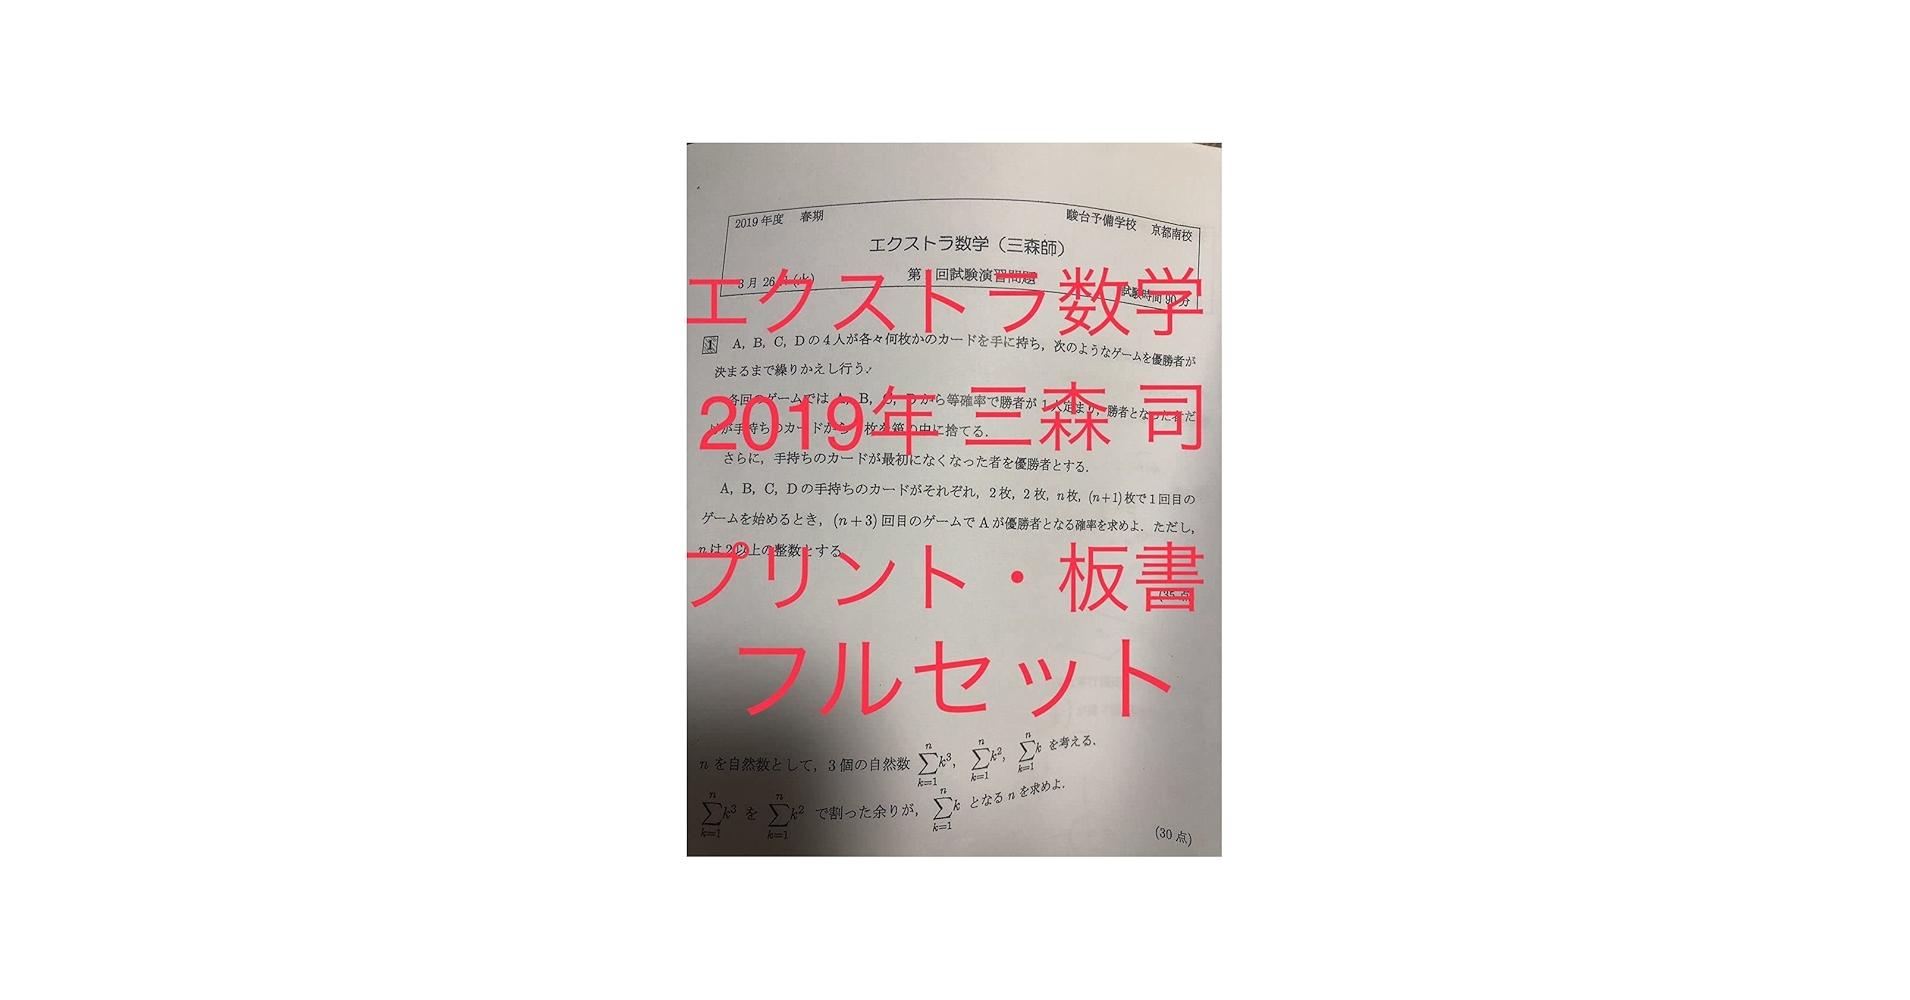 2019年度 春期
駿台予備学校 京都南校
エクストラ数学(三森師)
3月26日(火)
第 回試験演習問題
試験時間90分
エクストラ数学
1 A, B, C, Dの4人が各々何枚かのカードを手に持ち,次のようなゲームを優勝者が
決まるまで繰りかえし行う.
各回のゲームでは A, B, C, Dから等確率で勝者が1人定まり,勝者となった者だ
2019年 三森 司
けが手持ちのカードから 枚を箱の中に捨てる.
さらに,手持ちのカードが最初になくなった者を優勝者とする.
A, B, C, Dの手持ちのカードがそれぞれ,2枚,2枚,n枚,(n+1)枚で1回目の
ゲームを始めるとき,(n+3)回目のゲームでAが優勝者となる確率を求めよ.ただし,
nは2以上の整数とする.
プリント・板書
(35点)
フルセット
nを自然数として,3個の自然数 \sum_{k=1}^{n} k^3, \sum_{k=1}^{n} k^2, \sum_{k=1}^{n} k を考える.
\sum_{k=1}^{n} k^3 を \sum_{k=1}^{n} k^2 で割った余りが, \sum_{k=1}^{n} k となるnを求めよ.
(30点)